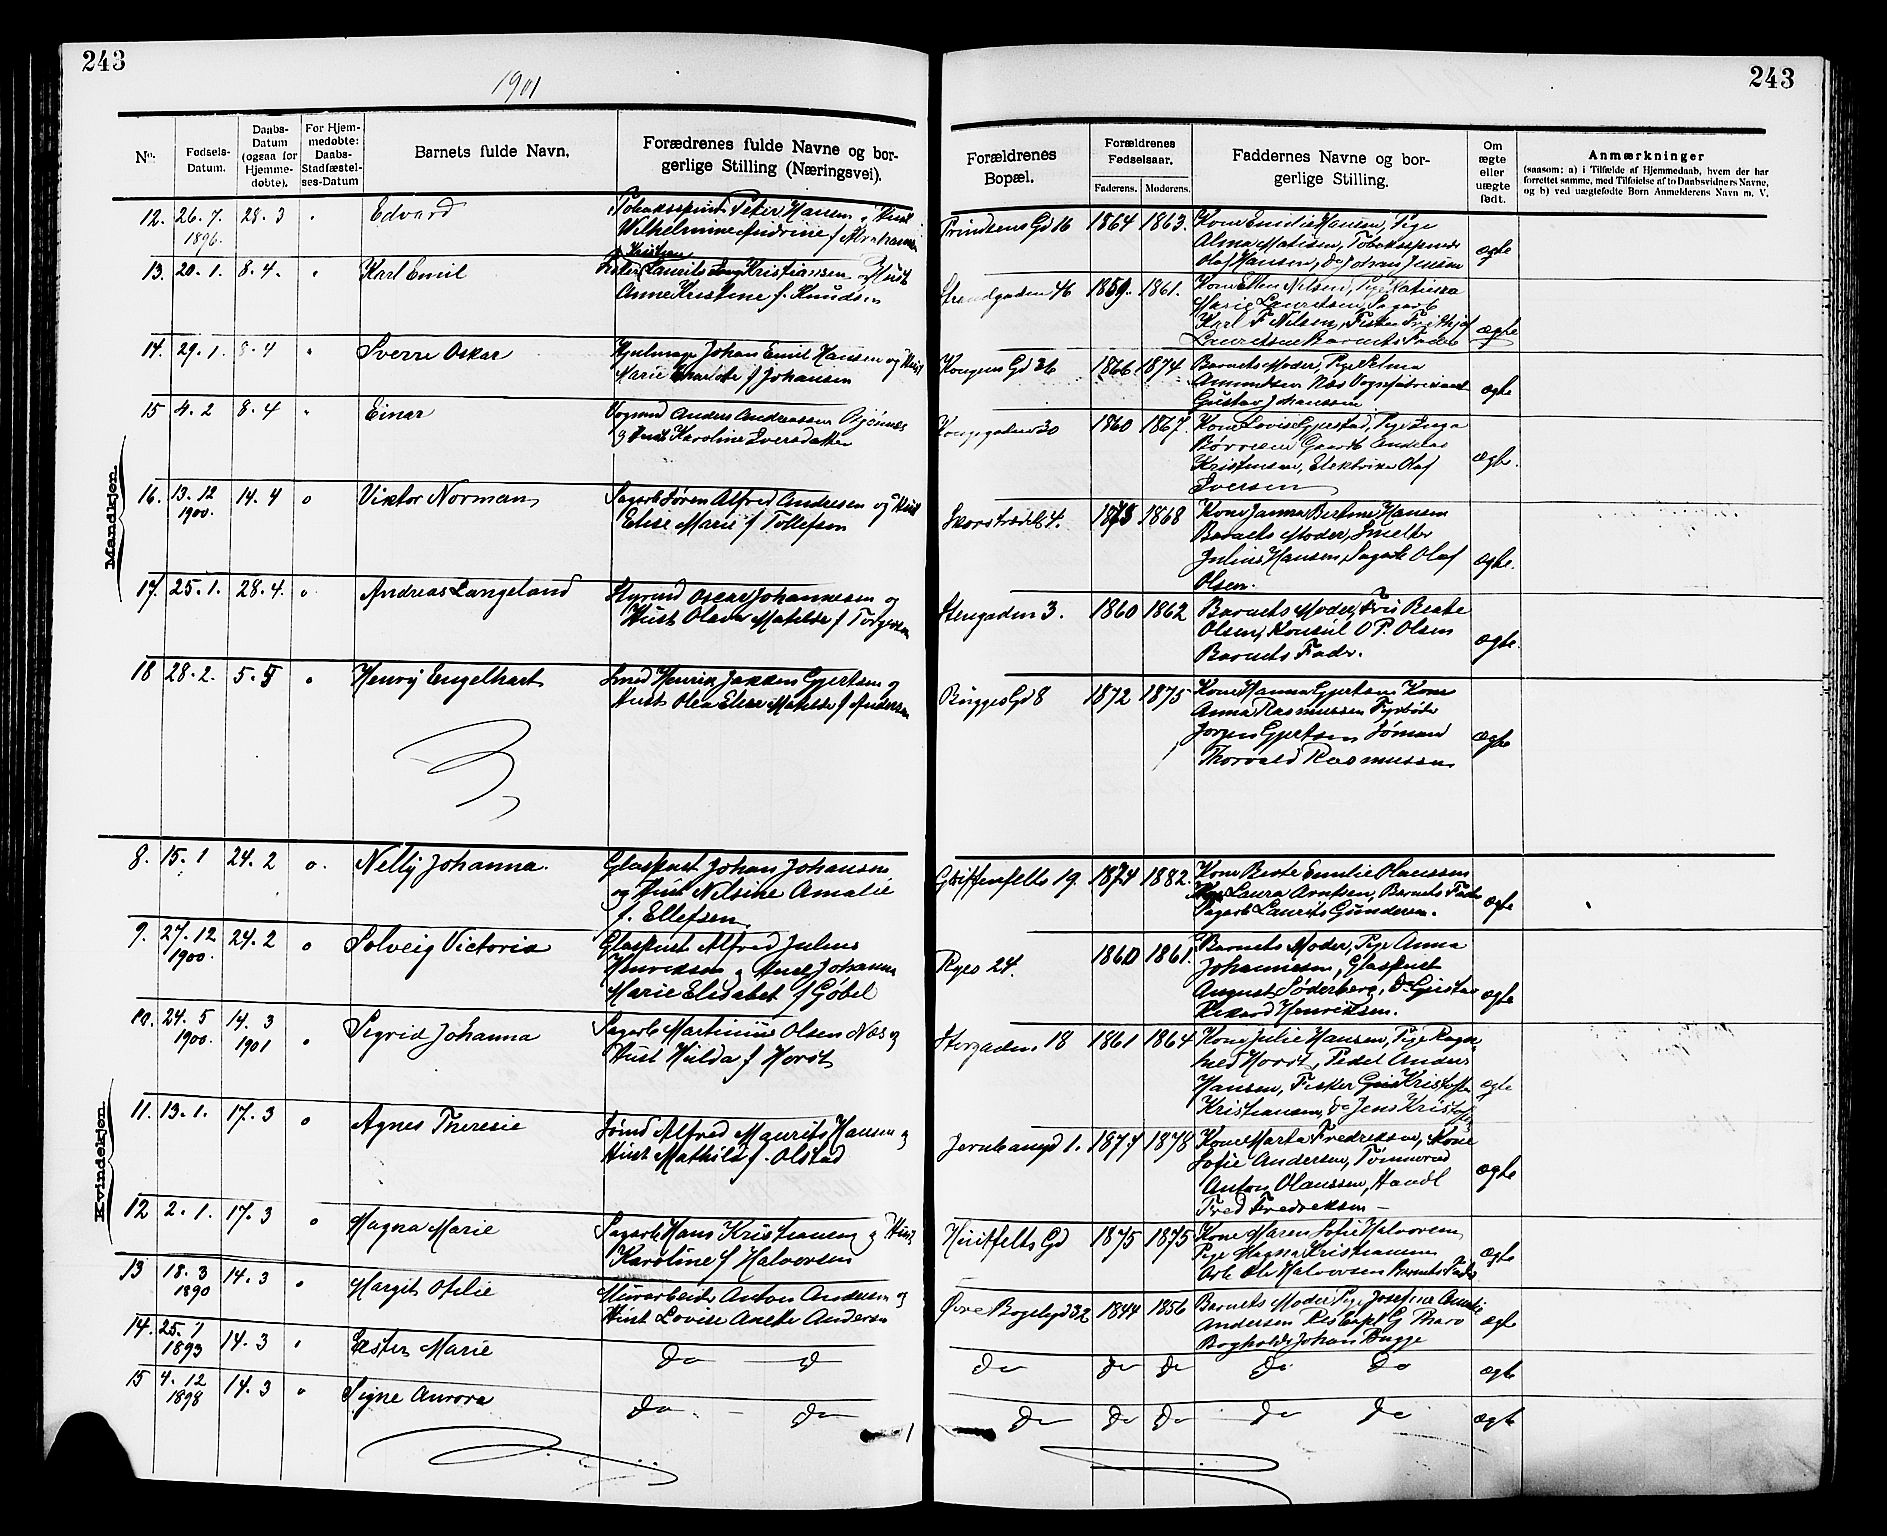 243
1901
243
No.
Fødsels-Datum.
Daabs-Datum (ogsaa for Hjemme-døbte).
For Hjem-medøbte: Daabs-Stadfæstel-ses-Datum
Barnets fulde Navn.
Forædrenes fulde Navne og bor-gerlige Stilling (Næringsvei).
Forældrenes Bopæl.
Forældrenes Fødselsaar.
Faderens. Moderens.
Faddernes Navne og bor-gerlige Stilling.
Om ægte eller uægte født.
Anmærkninger
(saasom: a) i Tilfælde af Hjemmedaab, hvem der har
forrettet samme, med Tilføielse af to Daabsvidners Navne,
og b) ved uægtefødte Børn Anmelderens Navn m. V.
Mandkjøn
12. 26. 7. 1896. 28. 3 Edvard
Peter Hansen og Hust
Vilhelmine Andrine f.
Prindsens Gd 16 1864 1863.
Kone Emilie Hansen, Pige
Alma
Olaf Hansen, Do Johan Jensen
ægte
13. 20. 1. 8. 4. Karl Emil
Kristiansen og Hust
Anne Kristine f. Knudsen
Strandgaden 46 1859. 1861.
Kone Ellen Nilsen, Pige
Marie Lauritsen, Sagarb
Karl F Nilsen, Fisker Frithjof
Lauritsen Barnets Fader
ægte
14. 29. 1. 8. 4 Sverre Oskar
Hjulmager Johan Emil Hansen og Hust
Marie f Johansen
Kongens Gd 26 1866. 1874
Barnets Moder, Pige
Amundsen Næs Vognfabrikant
Gustav Johanssen
ægte
15 4. 2 8. 4 Einar
Vognmd Anders Andreassen Bjønnes
og Hust Karoline Iversdatter
Kongegaden 30 1860 1867.
Kone Lovise Gjerstad, Pige Inga
Anders
Kristensen, Elektriker Olaf
Iversen
ægte.
16. 13. 12 1900. 14. 4 o Viktor Norman
Sagarb Søren Alfred Andresen og Hust
Elise Marie f Tollefsen
4. 1873 1868
Kone Janna Bertine Hansen
Barnets Moder, Smelter
Julius Hansen, Sagarb Olaf
Olsen.
ægte.
17. 25. 1. 28. 4. o Andreas Langeland
Styrmd Oscar Johannesen og
Hust Olava Matilde f Torgersen
Stengaden 3. 1860 1862
Barnets Moder, Fru Beate
Olsen, Konsul O P. Olsen
Barnets Fader.
ægte.
18 28. 2. 5. 5 o Henry Engelhart
Smed Henrik Jakken Gjertsen og
Hust Olea Elise Matilde f Andersen
Bugges Gd 8 1872 1875
Kone Hanna Gjertsen Kone
Anna Rasmussen Fyrbøter
Jørgen Gjertsen Sømand
Thorvald Rasmussen
ægte
Kvindekjøn
8. 15. 1 24. 2 o. Nelly Johanna.
Glaspust Johan Johansen
og Hust Nilsine Amalie
f. Ellefsen
Griffenfelts 19. 1874 1882.
Kone Berte Emilie Olaussen
Laura Arntsen, Barnets Fader
Sagarb Laurits Gundersen.
ægte
9. 27. 12 1900. 24. 2 o Solveig Victoria
Glaspust Alfred Julius
Henriksen og Hust Johanne
Marie Elisabet f Gøbel
Ryes 24. 1860 1861.
Barnets Moder, Pige Anna
Johannesen, Glaspust
August Søderberg, Do Gustav
Rikard Henriksen.
ægte
10. 24. 5 1900. 14. 3 1901 o Sigrid Johanna
Sagarb Martinius Olsen Næs og
Hust Hulda f Horst
Storgaden 18 1861 1864
Kone Julie Hansen, Pige Ragn
hild Horst, Pedel Anders
Hansen, Fisker
Kristiansen, Do Jens
ægte
11. 13. 1. 17. 3 o Agnes Theresie
Sømd Alfred Maurits Hansen og
Hust Mathilde f. Olstad
Jernbanegd 1. 1874 1878
Kone Marta Fredriksen, Kone
Sofie Andersen, Tømmermd
Anton Olaussen, Handl
Fred Fredriksen
ægte
12 2. 1. 17. 3 o Magna Marie
Sagarb Hans Kristiansen og Hust
Karoline f Halvorsen
Huitfelts Gd 1875 1875
Kone Maren Sofie Halvorsen,
Pige Magna Kristiansen
Arb Ole Halvorsen Barnets Fader
ægte
13 18. 3 1890 14. 3 o Margit Otilie
Murarbeider Anton Andersen og
Hust Lovise Anette Andersen
Øvre Bogelyd 32 1844 1856
Barnets Moder Pige Josefine Amalie
Andersen G Tharo
Bogholder Johan Bugge
ægt
14. 25. 7 1893 14. 3 Ester Marie
Do Do
Do Do Do Do Do
ægte
15 4. 12 1898 14. 3 o Signe Aurora
Do Do
Do Do Do Do Do
ægte